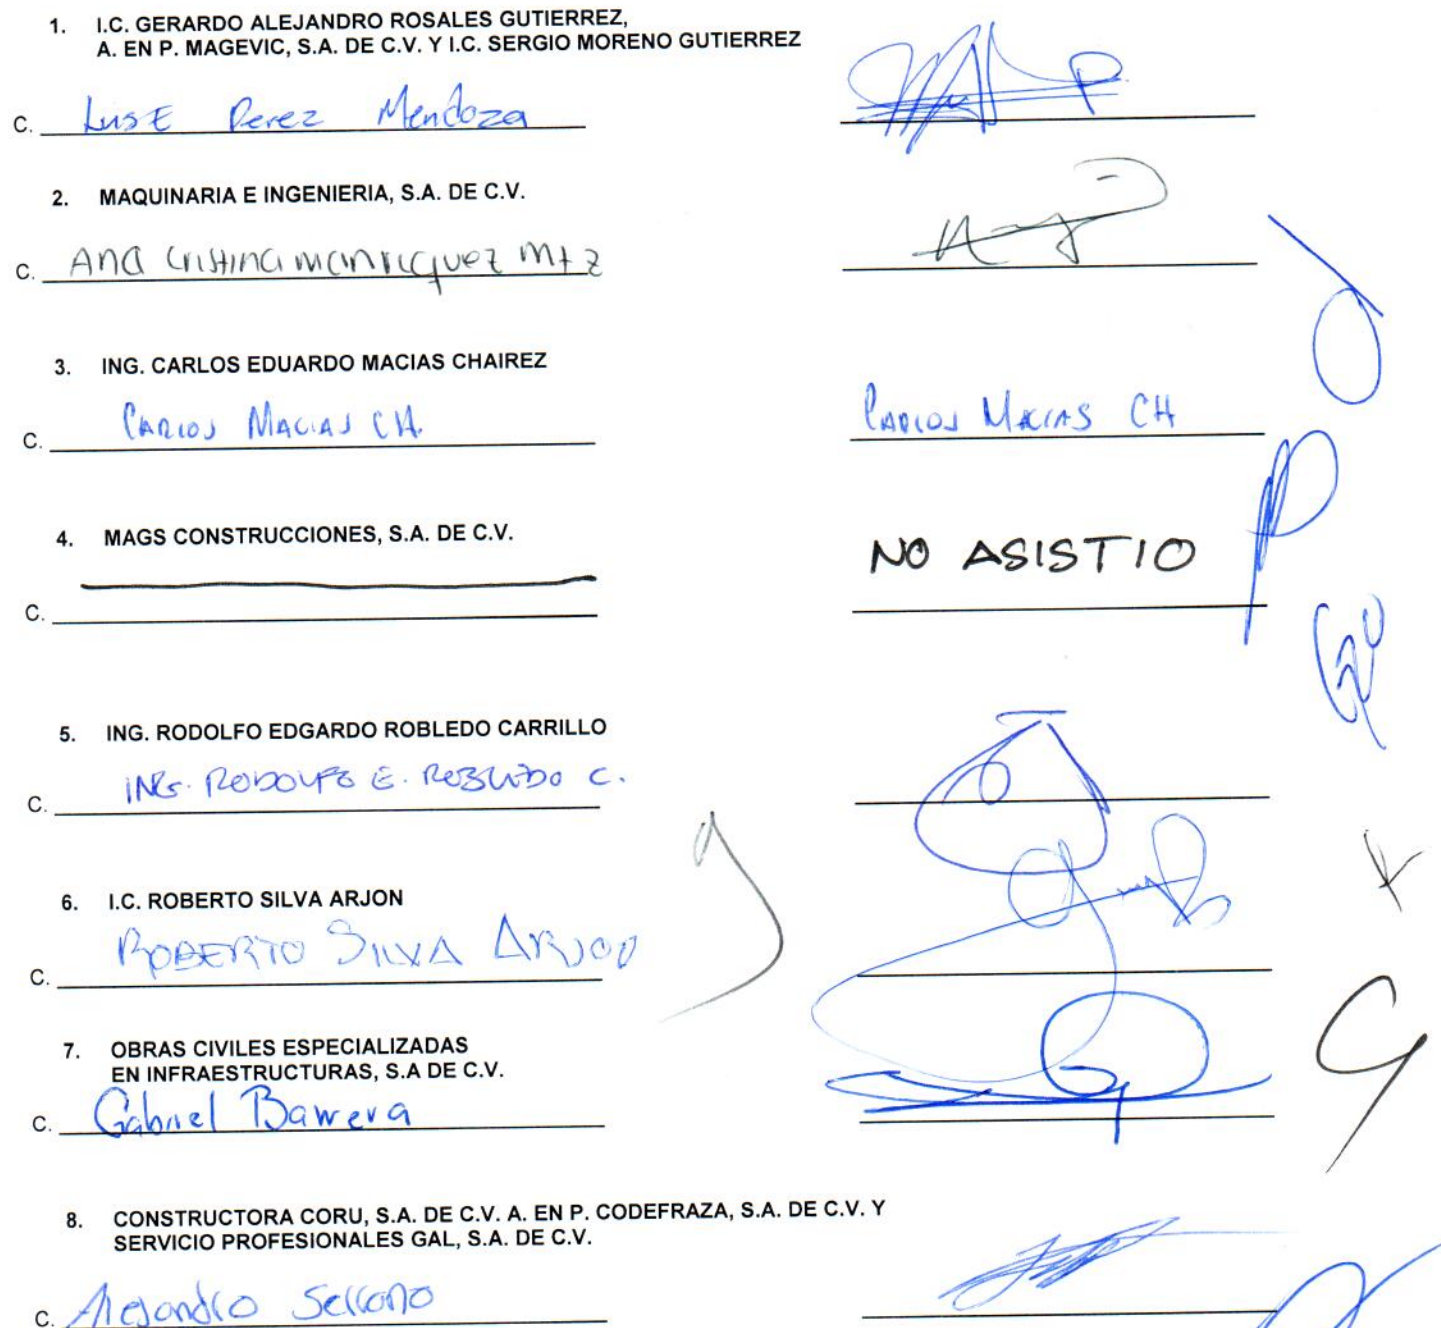 1. I.C. GERARDO ALEJANDRO ROSALES GUTIERREZ,
A. EN P. MAGEVIC, S.A. DE C.V. Y I.C. SERGIO MORENO GUTIERREZ
C. Luis E Perez Mendoza
2. MAQUINARIA E INGENIERIA, S.A. DE C.V.
C. Ana Cristina Manricquez Mtz
3. ING. CARLOS EDUARDO MACIAS CHAIREZ
C. CARLOS MACIAS CH. CARLOS MACIAS CH
4. MAGS CONSTRUCCIONES, S.A. DE C.V.
NO ASISTIO
C.
5. ING. RODOLFO EDGARDO ROBLEDO CARRILLO
C. ING. RODOLFO E. ROBLEDO C.
6. I.C. ROBERTO SILVA ARJON
C. ROBERTO SILVA ARJON
7. OBRAS CIVILES ESPECIALIZADAS
EN INFRAESTRUCTURAS, S.A DE C.V.
C. Gabriel Barrera
8. CONSTRUCTORA CORU, S.A. DE C.V. A. EN P. CODEFRAZA, S.A. DE C.V. Y
SERVICIO PROFESIONALES GAL, S.A. DE C.V.
C. Alejandro Serrano